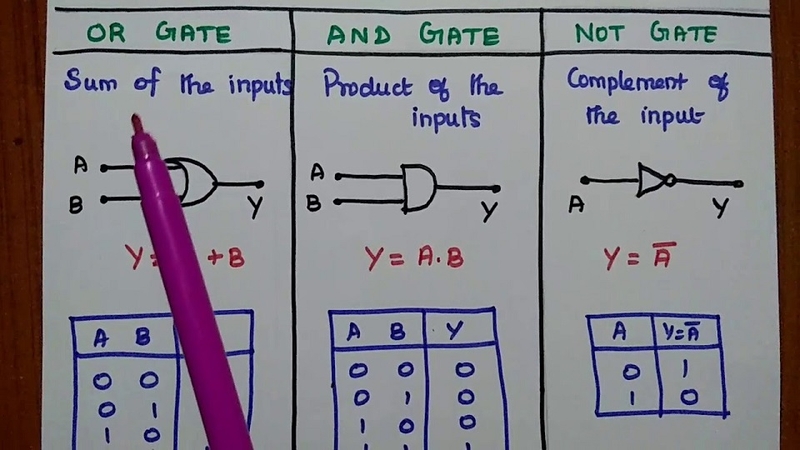 OR GATE
Sum of the inputs
A
B
Y
Y = + B
A B
0 0
0 1
1 0
AND GATE
Product of the
inputs
A
B
Y
Y = A.B
A B Y
0 0 0
0 1 0
1 0 0
NOT GATE
Complement of
the input
A
Y
Y = A̅
A Y=A̅
0 1
1 0